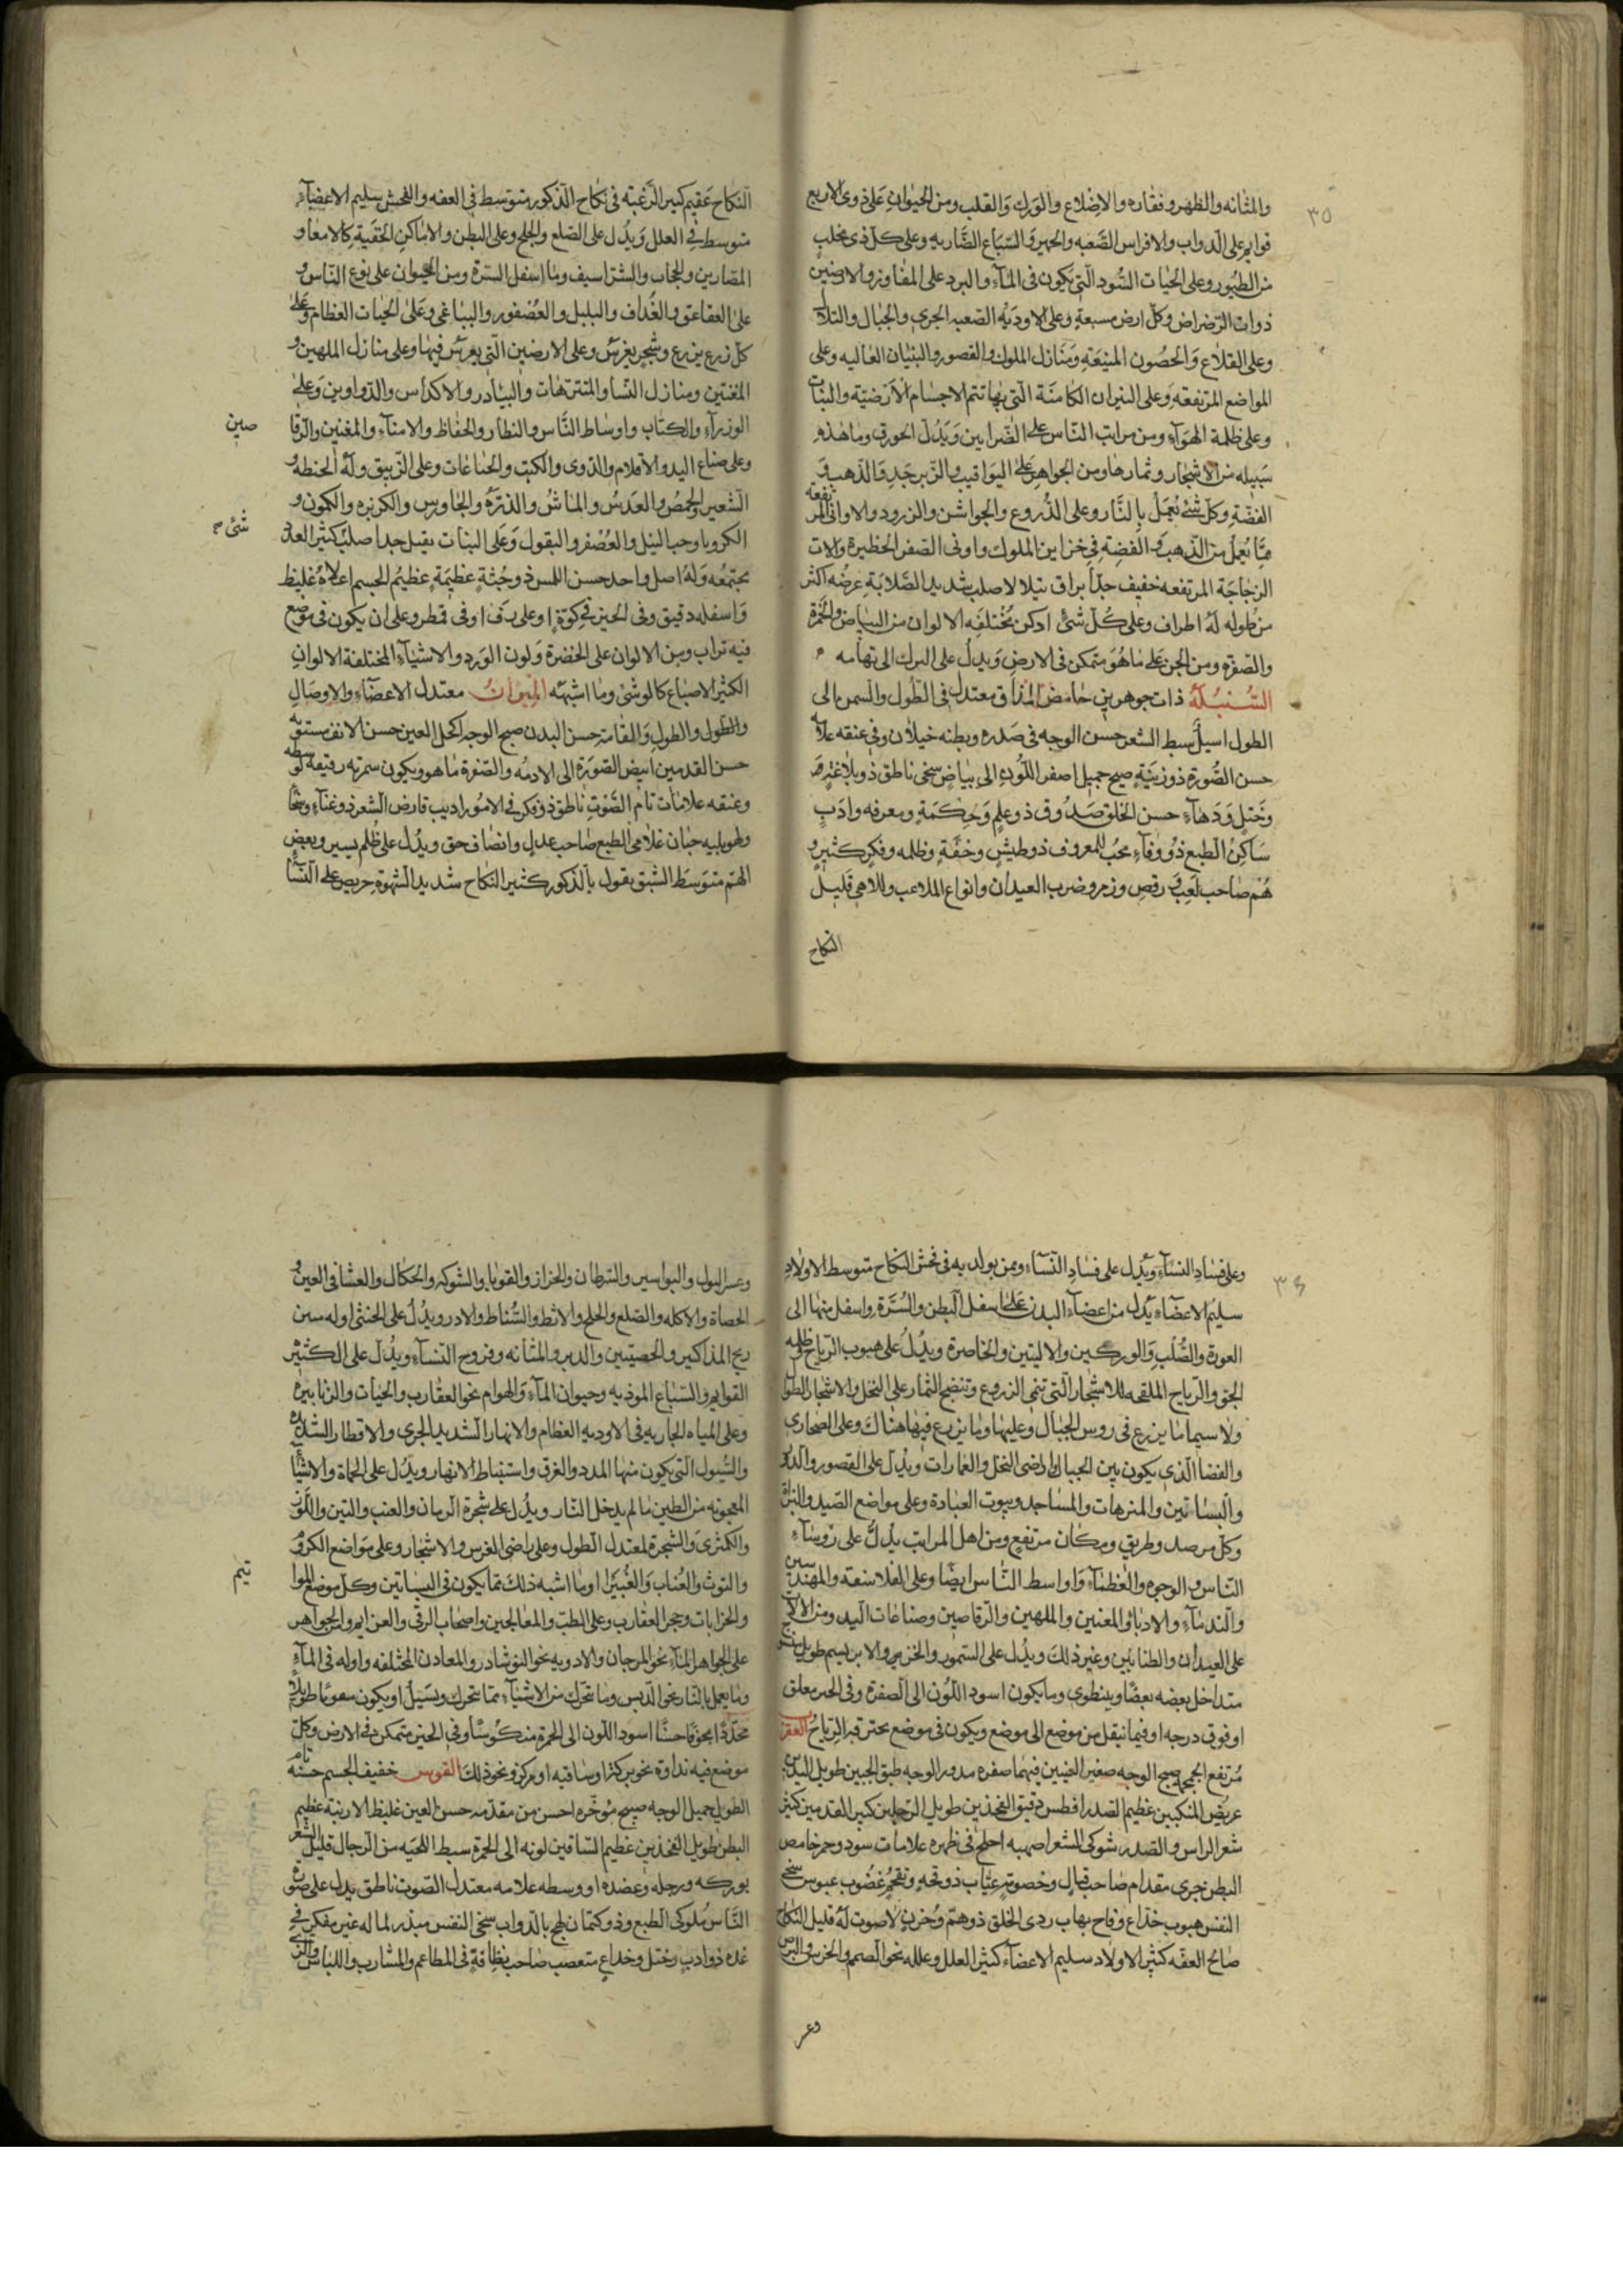 ٣٥
والمثانه والظهر وفقاره والاضلاع والورك والقلب ومن الحيوان على ذوى الاربع
قوايم على الدواب والافراس الصعبه والحمير والسباع الضاريه وعلى كل ذى مخلب
من الطيور وعلى الحيات السود التى تكون فى المآء والبرد على المفاوز والارضين
ذوات الرضراض وكل ارض مسبعة وعلى الاودية الصعبه الجرى والجبال والتلال
وعلى القلاع والحصون المنيعة ومنازل الملوك والقصور والبنيان العاليه وعلى
المواضع المرتفعة وعلى النيران الكامنة التى بها تتم الاجسام الارضية والنبات
وعلى ظلمة الهوآء ومن مراتب الناس على الضرابين ويدل الحور وما هذه
سبيله من الاشجار وثمارها ومن الجواهر على اليواقيت والزبرجد والذهب و
الفضة وكل شئ يعمل بالنار وعلى الدروع والجواشن والزرود والاوانى المرتفعة
مما يعمل من الذهب والفضة فى خزاين الملوك واوفى الصفر الخطيرة والات
الزجاجة المرتفعه خفيف جدا براق يتلالا صلب شديد الصلابة عرضه اكثر
من طوله له اطراف وعلى كل شئ ادكن مختلفه الالوان من البياض والحمرة
والصفرة ومن الجن على ما هو متمكن فى الارض ويدل على البرك الى تهامه
السنبلة ذات جوهرين حامض المذاق معتدل فى الطول والسمن مالى
الطول اسيل سبط الشعر حسن الوجه فى صدره وبطنه خيلان وفى عنقه علامه
حسن الصورة ذو زينة صبيح جميل اصفر اللون الى بياض سخى ناطق ذو بلاغة و
وختل ودهآء حسن الخلق صدوق ذو علم وحكمة ومعرفه وادب
ساكن الطبع ذو وفآء محب للمعروف ذو طيش وخفة وظلمه وفكر كثير و
هم صاحب لعب ورقص وزمر وضرب العيدان وانواع الملاعب والملاهى قليل
النكاح
النكاح عقيم كبير الرغبة فى نكاح الذكور متوسط فى العفه والفحش سليم الاعضآء
متوسط فى العلل ويدل على الصلع والجلح وعلى البطن والاماكن الخفية كالامعا و
المصارين والحجاب والشراسيف وما اسفل السترة ومن الحيوان على نوع الناس و
على العقاعق والغداف والبلبل والعصفور والببغا وعلى الحيات العظام وعلى
كل زرع يزرع وشجر يغرس وعلى الارضين التى يغرس فيها وعلى منازل الملهين و
المغنين ومنازل النسا والمتنزهات والبيادر والاكداس والدواوين وعلى
الوزرآء والكتاب واوساط الناس والنظار والحفاظ والامنآء والمغنين والرقا
صين
وعلى صناع اليد والاقلام والدوى والكتب والصناعات وعلى الزيبق وله الحنطه و
الشعير والحمص والعدس والماش والذرة والجاورس والكزبره والكمون و
شئ صح
الكرويا وحب النيل والعصفر والبقول وعلى النبات ثقيل جدا صلب كثير العلل
مجتمعه وله اصل واحد حسن اللمس ذو جثة عظيمة عظيم الجسم اعلاه غليظ
واسفله دقيق وفى الحيز فى كوة او على رف او فى قمطر وعلى ان يكون فى موضع
فيه تراب ومن الالوان على الخضرة ولون الورد والاشيآء المختلفة الالوان
الكثير الاصباغ كالوشى وما اشبهه الميزان معتدل الاعضآء والاوصال
والطول والطول والقامة حسن البدن صبيح الوجه اكحل العين حسن الانف مستويه
حسن القدمين ابيض الصورة الى الادمه والصفرة ما هو ويكون سمرته رقيقه لو سطه
وعنقه علامات تام الصوت ناطق ذو فكر فى الامور اديب قارض الشعر ذو غنآء
الطبع صاحب عدل وانصاف حق ويدل على ظلم يسير وبعض
الهم متوسط الشبق يقول بالذكور كثير النكاح شديد الشهوة حريص على النسآ
٣٦
وعلى فساد النسآء ويدل على فساد النسآء ومن يولد به فى فحش النكاح متوسط الاولاد
سليم الاعضآء يدل من اعضآء البدن على اسفل البطن والسرة واسفل منها الى
العورة والصلب والوركين والاليتين والخاصرة ويدل على هبوب الرياح وظلمه
الجو والرياح الملقحه للاشجار التى تنمى الزروع وتنضج الثمار على النخل والاشجار الطوال
ولا سيما ما يزرع فى روس الجبال وعليها وما يزرع فيها هناك وعلى الصحارى
والفضا الذى يكون بين الجبال واراضى النخل والعمارات ويدل على القصور والدور
والبساتين والمتنزهات والمساجد وبيوت العبادة وعلى مواضع الصيد والبزاة
وكل مرصد وطريق ومكان مرتفع ومن اهل المراتب يدل على روسآء
الناس والوجوه والعظمآء واواسط الناس ايضا وعلى الفلاسفه والمهندسين
والندمآء والادبآ والمغنين والملهين والرقاصين وصناعات اليد ومن الالات
على العيدان والطنابير وغير ذلك ويدل على السمور والخز والابريسم طويل
متداخل بعضه بعضا وينطوى وما يكون اسود اللون الى الصفرة وفى الحيز معلق
او فوق درجه او فيما ينقل من موضع الى موضع ويكون فى موضع تحترقه الرياح العقرب
مرتفع الجمجمة صبيح الوجه صغير العينين فيهما صفره مدور الوجه ضيق الجبين طويل اليدين
عريض المنكبين عظيم الصدر افطس دقيق الفخذين طويل الرجلين كبير القدمين كثير
شعر الراس والصدر شوكى الشعر اصهبه اجلح فى ظهره علامات سود وحمر خامص
البطن جرى مقدام صاحب قتال وخصومة عياب ذو قحة وتقحم غضوب عبوس سخى
النفس هبوب خداع وقاح بهاب ردى الخلق ذو هم وحزن لا صوت له قليل النكاح
صالح العفه كثير الاولاد سليم الاعضآء كثير العلل وعلله نحو الصمم والخرس والبرص
وعسر
وعسر البول والبواسير والسرطان والحزاز والقوبا والشوكه والحكاك والعشا فى العين و
الحصاة والاكله والصلع والجلح والاثط والسناط والادر ويدل على الخنثى وله من
المذاكير والخصيتين والدبر والمثانه وفروج النسآء ويدل على الكثير
القوايم والسباع الموذيه وحيوان المآء والهوام نحو العقارب والحيات والزنابير
وعلى المياه الجاريه فى الاوديه العظام والانهار الشديد الجرى والاقطار الشديده
والسيول التى يكون منها المدد والغرق واستنباط الانهار ويدل على الحماة والاشيآ
المعجونه من الطين ما لم يدخل النار ويدل على شجرة الرمان والعنب والتين واللوز
والكمثرى والشجرة المعتدل الطول وعلى اراضى الغرس والاشجار وعلى مواضع الكروم
والتوث والعناب والغبيرا وما اشبه ذلك مما يكون فى البساتين وكل موضع للهوا
تيم
والخرابات وجحر العقارب وعلى الطب والمعالجين واصحاب الرقى والعزايم ومن الجواهر
على الجواهر المآء نحو المرجان والادويه نحو النوشادر والمعادن المختلفه واوله فى المآء
وما يعمل بالنار نحو الدبس وما تحرك من الاشيآء مما يتحرك ويسيل او يكون طويلا
محددا مجوفا حسنا اسود اللون الى الحمرة منكوسا وفى الحيز متمكن فى الارض وكل
موضع فيه نداوة نحو بركة او ساقيه او مركز ونحو ذلك القوس خفيف الجسم حسنه تام
الطول جميل الوجه صبيح مؤخره احسن من مقدمه حسن العين غليظ الارنبة عظيم
البطن طويل الفخذين عظيم الساقين لونه الى الحمرة سبط اللحيه من الرجال قليل الشعر
بوركه ورجله وعضده او وسطه علامه معتدل الصوت ناطق يدل على صون
الناس ملوكى الطبع وذو كتمان لهج بالدواب سخى النفس مبذر لما له غير مفكر فى
غده ذو ادب وختل وخداع متعصب صاحب نظافة فى المطاعم والمشارب واللباس